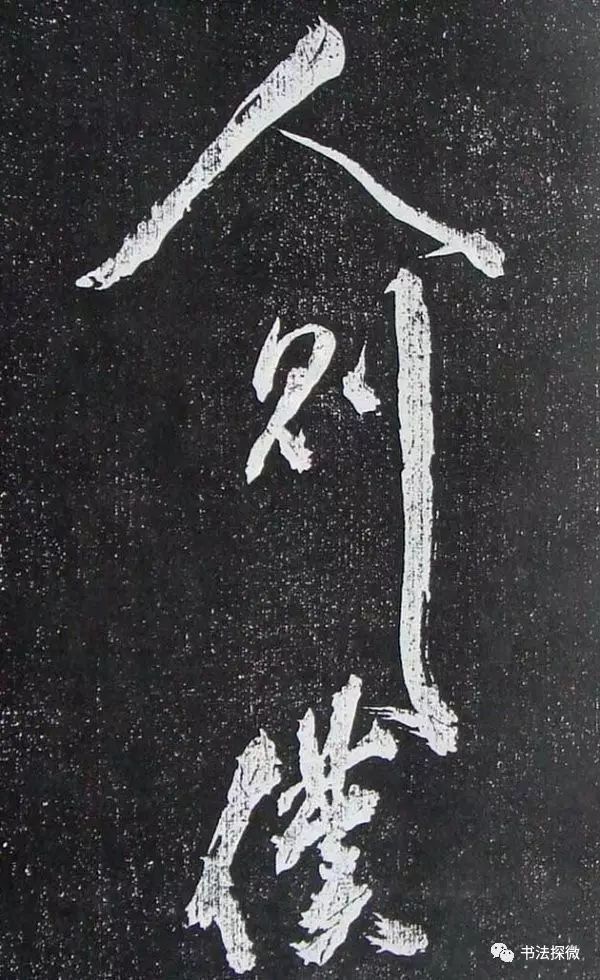 人则僕
书法探微